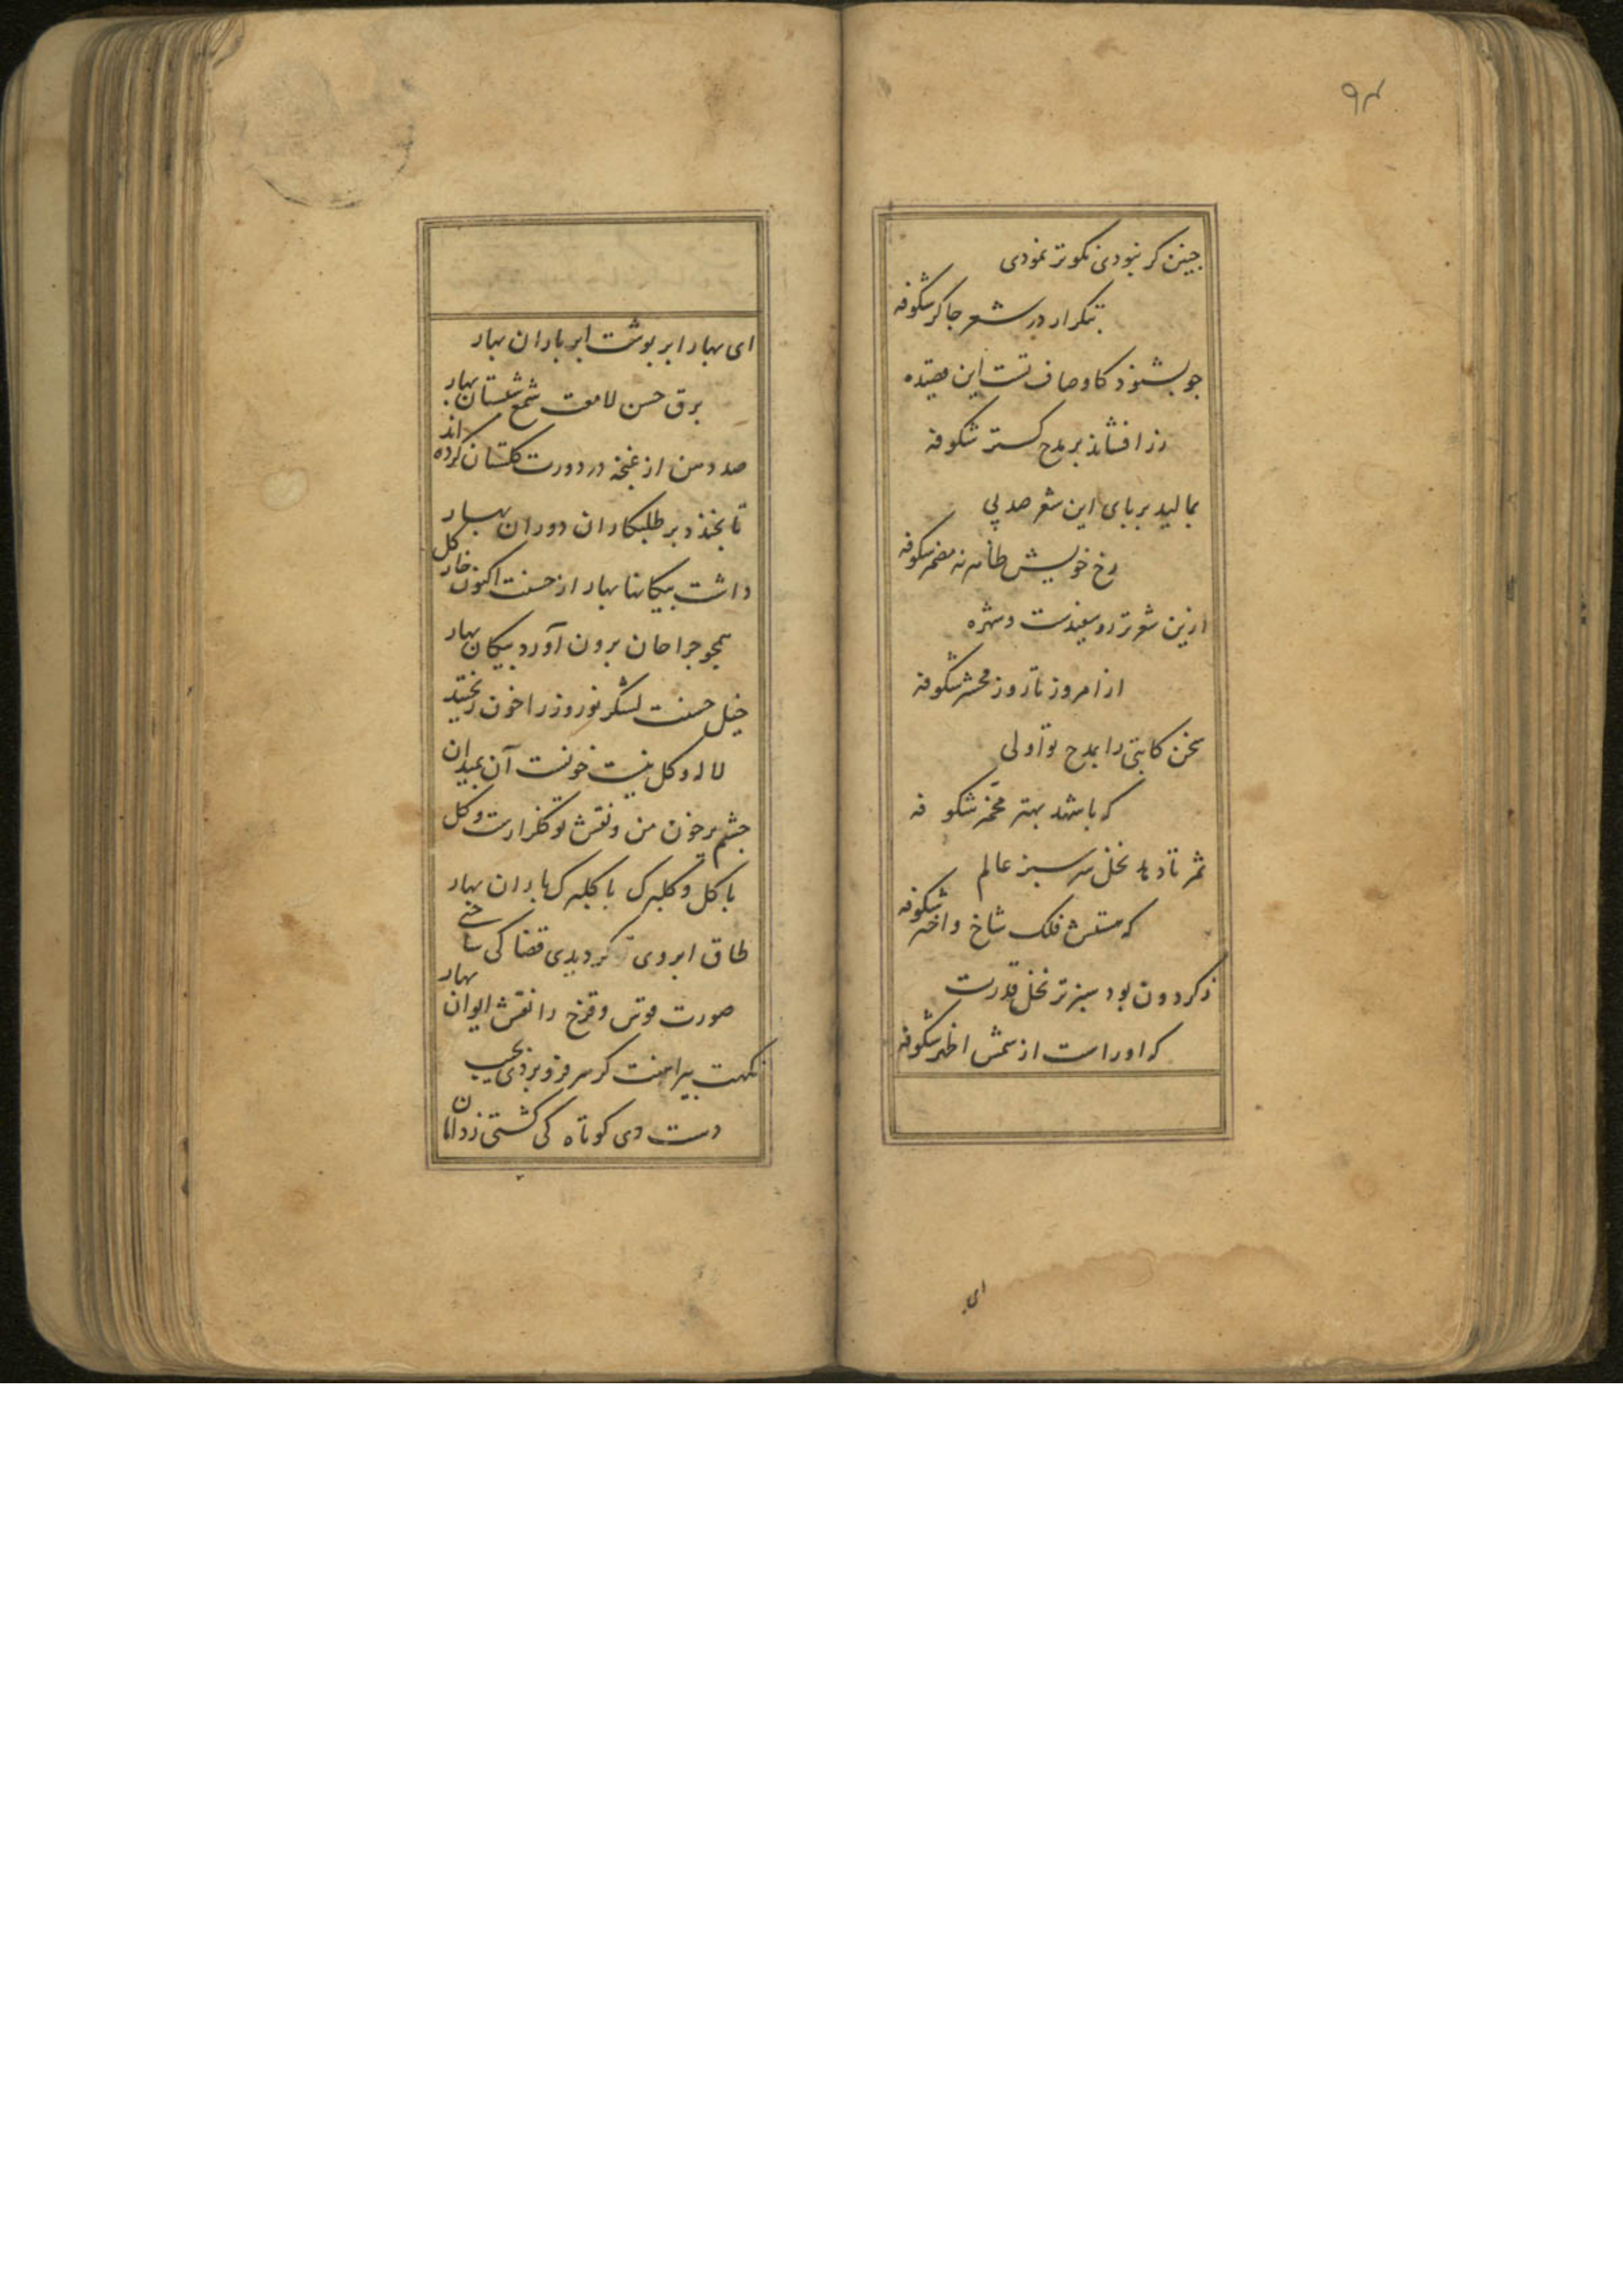 ۹۴
چنین کر نبودی نکوتر نمودی
بتکرار در شعر جاکر شکوفه
جو بشنود کاوصاف تست این قصیده
زر افشاند بر مدح کستر شکوفه
بمالید بر بای این شعر صد پی
رخ خویش ظاهر نه مضمر شکوفه
ازین شعر تر رو سفیدست و شهره
از امروز تا روز محشر شکوفه
سخن کاتبی را بمدح تو اولی
که باشد بهتر شکوفه
ثمر تا دهد نخل سرسبز عالم
که هستش فلک شاخ و اختر شکوفه
ز کردون بود سبزتر نخل قدرت
که اوراست از شمس اظهر شکوفه
ای
ای بهار ابر بوشت ابر باران بهار
برق حسن لامعت شمع شبستان بهار
صد دهن از غنجه در دورت کلستان کرده اند
تا بخندد بر طلبکاران دوران بهار
داشت بیکانها بهار از حسنت اکنون خار کل
همجو جراحان برون آورد بیکان بهار
خیل حسنت لشکر نوروز را خون ریختند
لاله و کل نیست خونست آن بمیدان
جشم برخون من و نقش تو کلزارست و کل
با کل و کلبرک با کلبرک باران بهار
طاق ابروی کر دیدی قضا کی ساختی
صورت قوس و قزح را نقش ایوان بهار
نکهت بیراهنت کر سر فرو بردی بجیب
دست دی کوتاه کی کشتی ز دامان